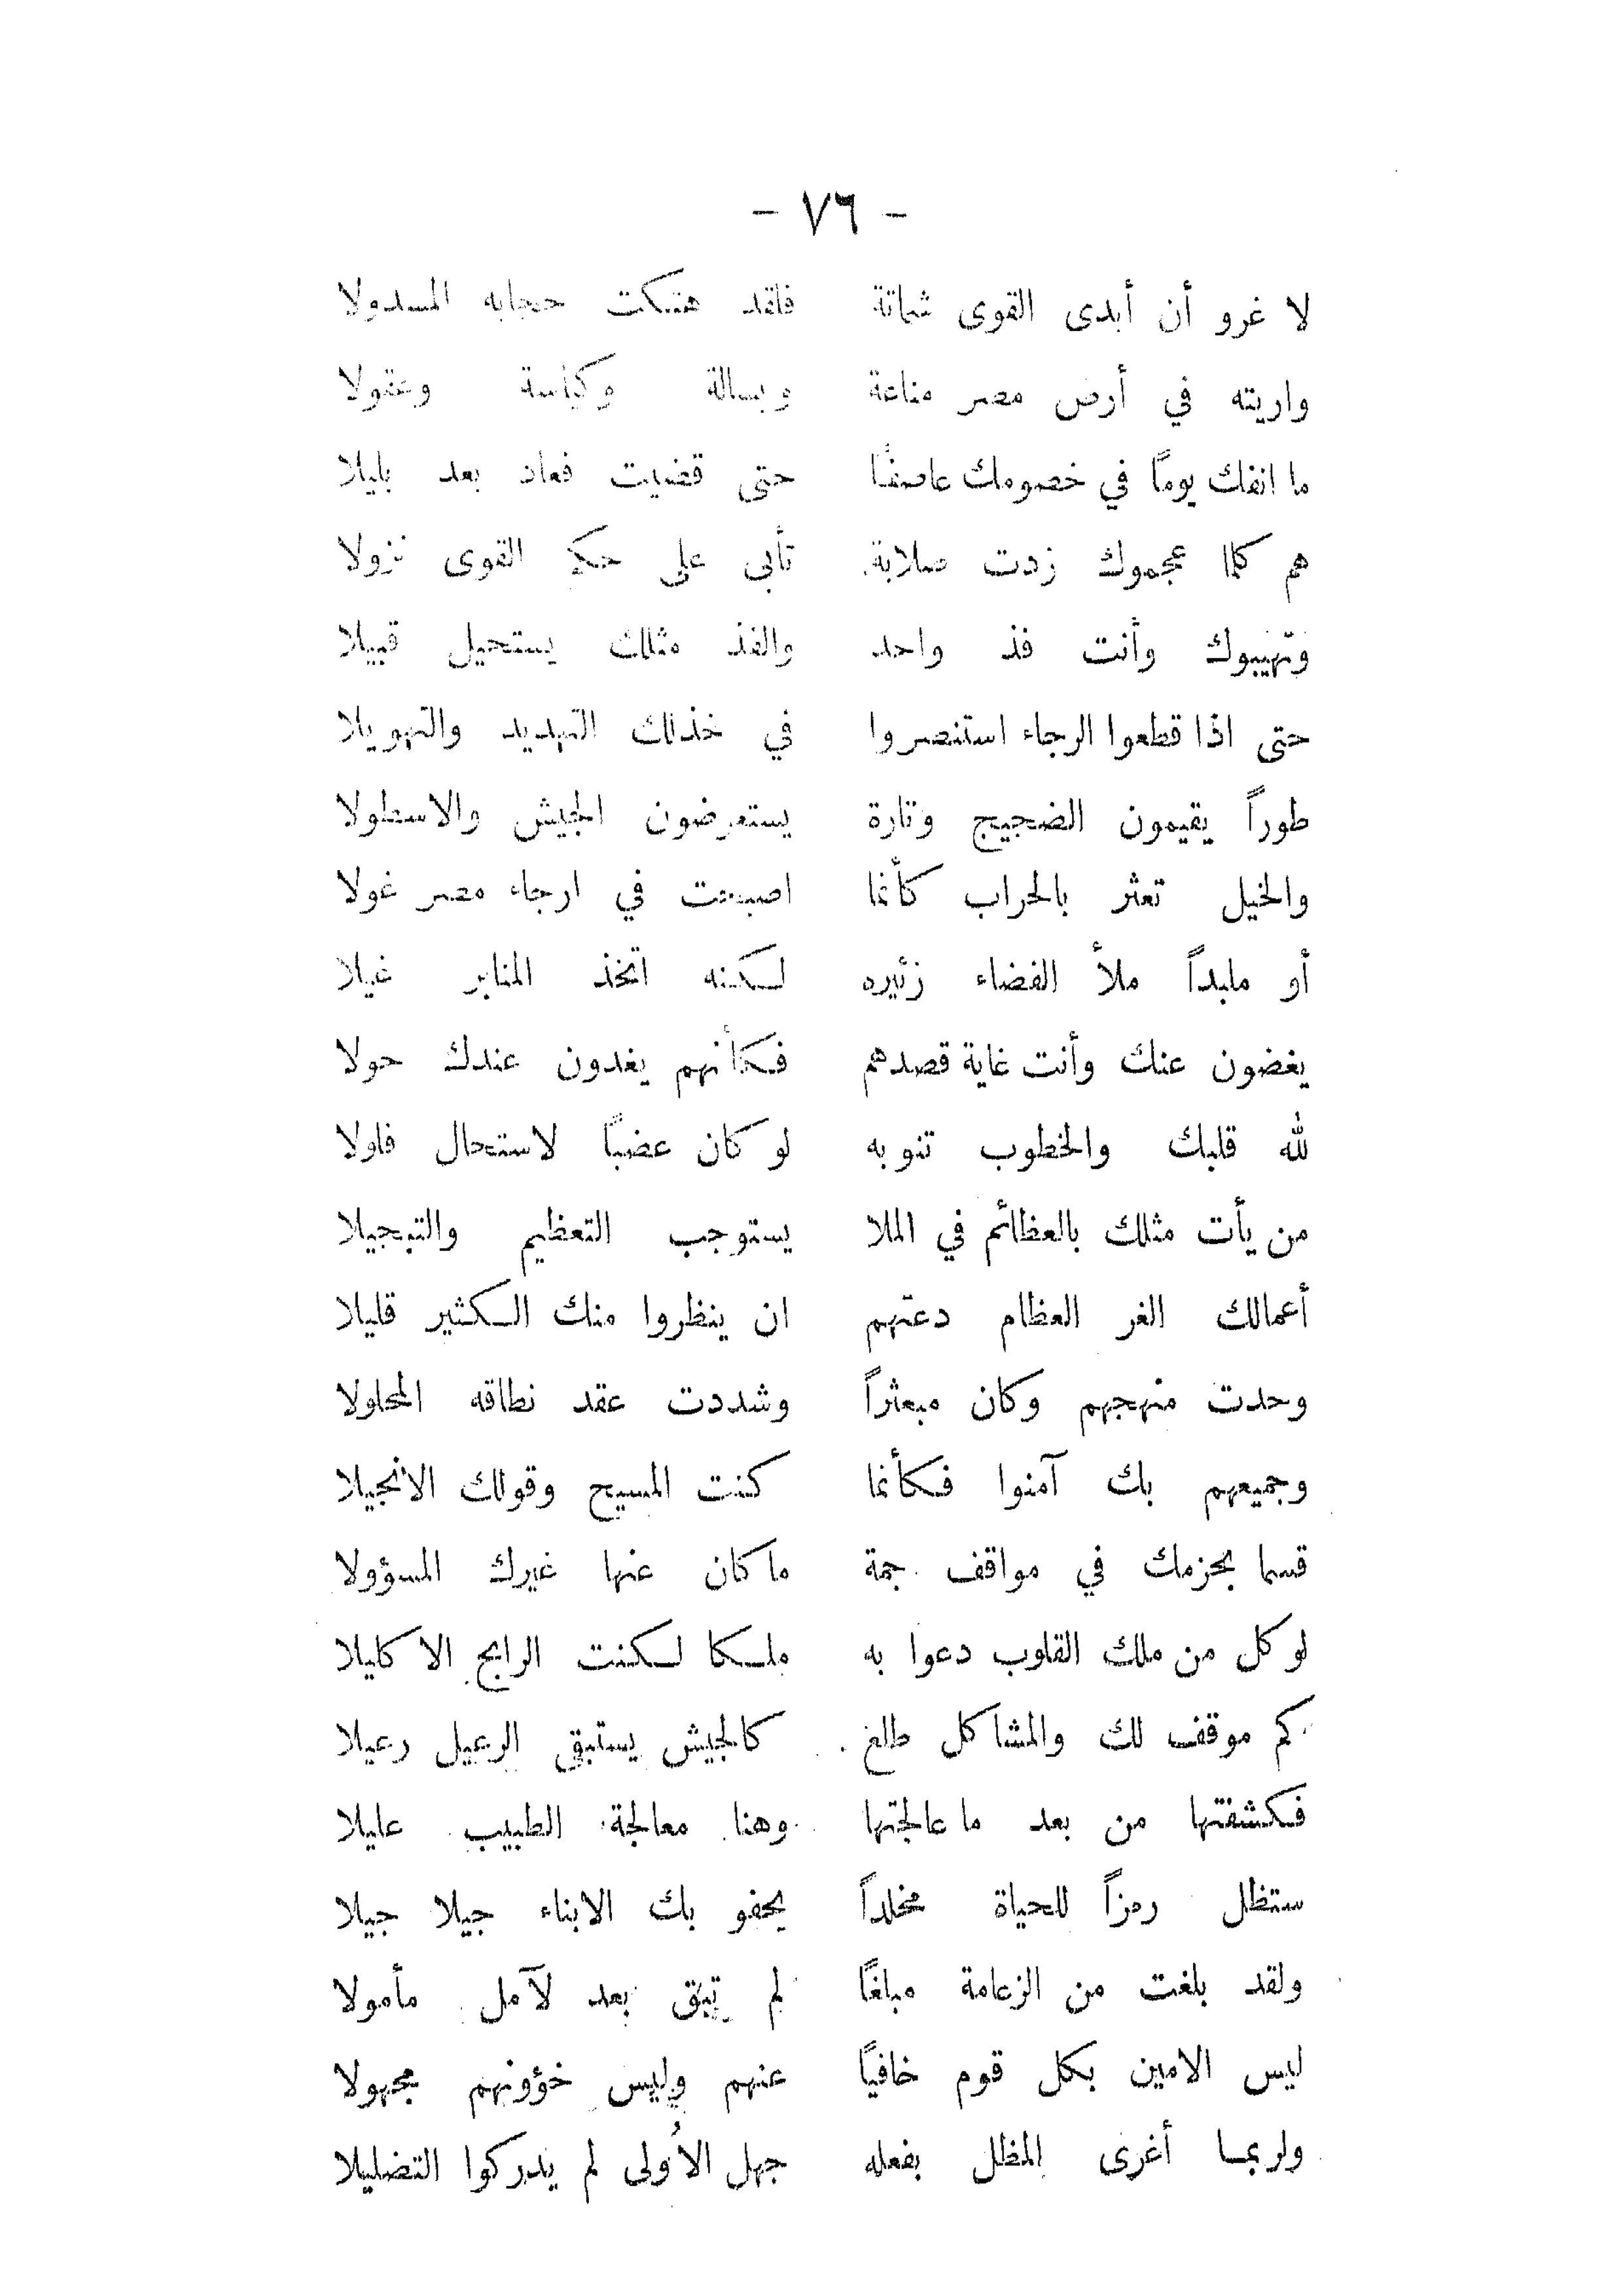 - ٧٦ -
لا غرو أن أبدى القوى شماتة فلقد هتكت حجابه المسدولا
واريته في أرض مصر مناعة وبسالة وكياسة وعقولا
ما انفك يوماً في خصومك عاصفاً حتى قضيت فعاد بعد بليلا
هم كلما عجموك زدت صلابة تأبى على حكم القوى نزولا
وتهيبوك وأنت فذ واحد والفذ مثلك يستحيل قبيلا
حتى اذا قطعوا الرجاء استنصروا في خذلك التهديد والتهويلا
طوراً يقيمون الضجيج وتارة يستعرضون الجيش والاسطولا
والخيل تعثر بالحراب كأنما اصبحت في ارجاء مصر غولا
أو ملبداً ملأ الفضاء زئيره لكنه اتخذ المنابر غيلا
يغضون عنك وأنت غاية قصدهم فكأنهم يغدون عندك حولا
لله قلبك والخطوب تنوبه لو كان عضباً لاستحال فلولا
من يأت مثلك بالعظائم في الملا يستوجب التعظيم والتبجيلا
أعمالك الغر العظام دعتهم ان ينظروا منك الكثير قليلا
وحدت منهجهم وكان مبعثراً وشددت عقد نطاقه المحلولا
وجميعهم بك آمنوا فكأنما كنت المسيح وقولك الانجيلا
قسما بحزمك في مواقف جمة ما كان عنها غيرك المسؤولا
لو كل من ملك القلوب دعوا به ملكا لكنت الرابح الاكليلا
كم موقف لك والمشاكل طلع كالجيش يستبق الرعيل رعيلا
فكشفتها من بعد ما عالجتها وهنا معالجة الطبيب عليلا
ستظل رمزاً للحياة مخلداً يحفو بك الابناء جيلا جيلا
ولقد بلغت من الزعامة مبلغاً لم تبق بعد لآمل مأمولا
ليس الامين بكل قوم خافياً عنهم وليس خؤونهم مجهولا
ولربما أغرى المظل بفعله جهل الأولى لم يدركوا التضليلا